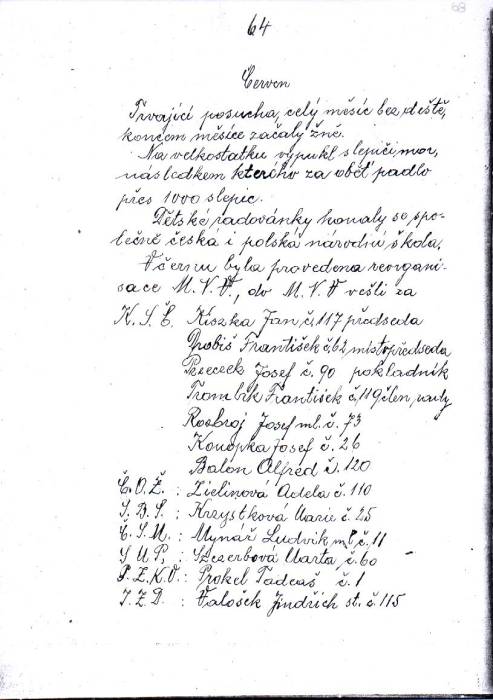 68
64
Červen
Trvající posucha, celý měsíc bez deště,
koncem měsíce začaly žně.
Na velkostatku vypukl slepičí mor,
následkem kterého za oběť padlo
přes 1000 slepic.
Dětské radovánky konaly se spo-
lečně česká i polská národní škola.
V černu byla provedena reorgani-
sace M.N.V., do M.N.V vešli za
K.S.Č. Kiszka Jan č. 117 předseda
Drobiš František č. 62 místopředseda
Josef č. 90 pokladník
František č. 119 člen, rady
Rozbroj Josef ml. č. 73
Konopka Josef č. 26
Balon Alfred č. 120
Č.O.Ž. : Zielinová Adela č. 110
S.B.S. : Krzystková Marie č. 25
Č.S.M. : Mynář Ludvik ml. č. 11
Szczerbová Marta, č. 60
Prokel Tadeáš č. 1
J.Z.D. : Valošek Jindřich st. č. 115